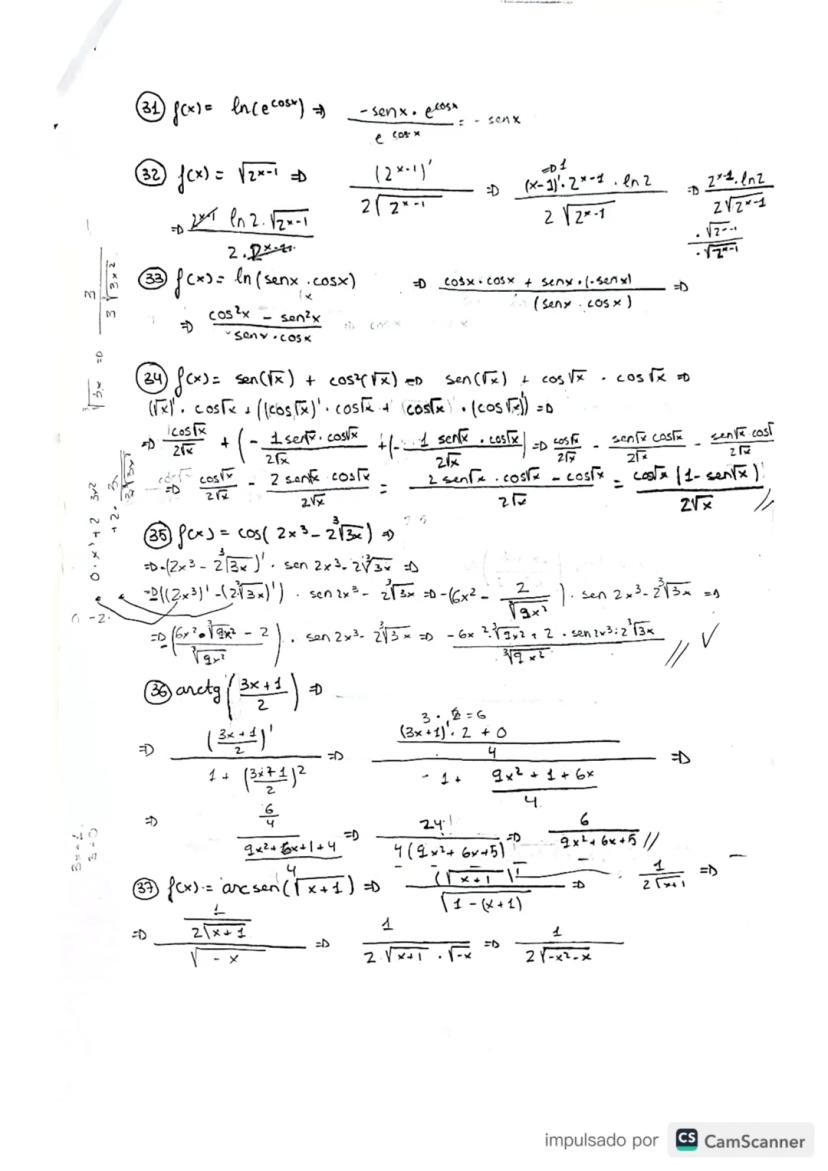 (31) f(x) = ln(e^cosx) => (-senx · e^cosx)/(e^cosx) = - senx
(32) f(x) = √(2^(x-1)) => (2^(x-1))'/(2√(2^(x-1))) => ((x-1)' · 2^(x-1) · ln2)/(2√(2^(x-1))) => (2^(x-1) · ln2)/(2√(2^(x-1)))
(33) f(x) = ln(senx · cosx) => (cosx · cosx + senx · (-senx))/(senx · cosx) =>
=> (cos²x - sen²x)/(senx · cosx)
(34) f(x) = sen(√x) + cos²(√x) => sen(√x) + cos√x · cos√x =>
(√x)' · cos√x + ((cos√x)' · cos√x + cos√x · (cos√x)') =>
=> cos√x/(2√x) + (- (1 sen√x · cos√x)/(2√x) + (- (1 sen√x · cos√x)/(2√x) => cos√x/(2√x) - (sen√x cos√x)/(2√x) - (sen√x cos√x)/(2√x)
=> cos√x/(2√x) - (2 sen√x cos√x)/(2√x) = (2 sen√x · cos√x - cos√x)/(2√x) = (cos√x (1 - sen√x))/(2√x) //
(35) f(x) = cos(2x³ - 2∛(3x)) =>
=> -(2x³ - 2∛(3x))' · sen 2x³ - 2∛(3x) =>
=> ((2x³)' - (2∛(3x))') · sen 2x³ - 2∛(3x) => -(6x² - 2/∛(9x²)) · sen 2x³ - 2∛(3x) =>
=> -((6x² · ∛(9x²) - 2)/∛(9x²)) · sen 2x³ - 2∛(3x) => (-6x² · ∛(9x²) + 2 · sen 2x³ - 2∛(3x))/∛(9x²) // ✓
(36) arctg((3x+1)/2) =>
3 · 2 = 6
=> ((3x+1)/2)'/(1 + ((3x+1)/2)²) => (((3x+1)' · 2 + 0)/4)/(1 + (9x² + 1 + 6x)/4) =>
=> (6/4)/((9x² + 6x + 1 + 4)/4) => 24/(4(9x² + 6x + 5)) => 6/(9x² + 6x + 5) //
(37) f(x) = arcsen(√(x+1)) => (√(x+1))'/√(1 - (x+1)) => 1/(2√(x+1)) =>
=> (1/(2√(x+1)))/√(-x) => 1/(2 · √(x+1) · √(-x)) => 1/(2√(-x² - x))
impulsado por CS CamScanner